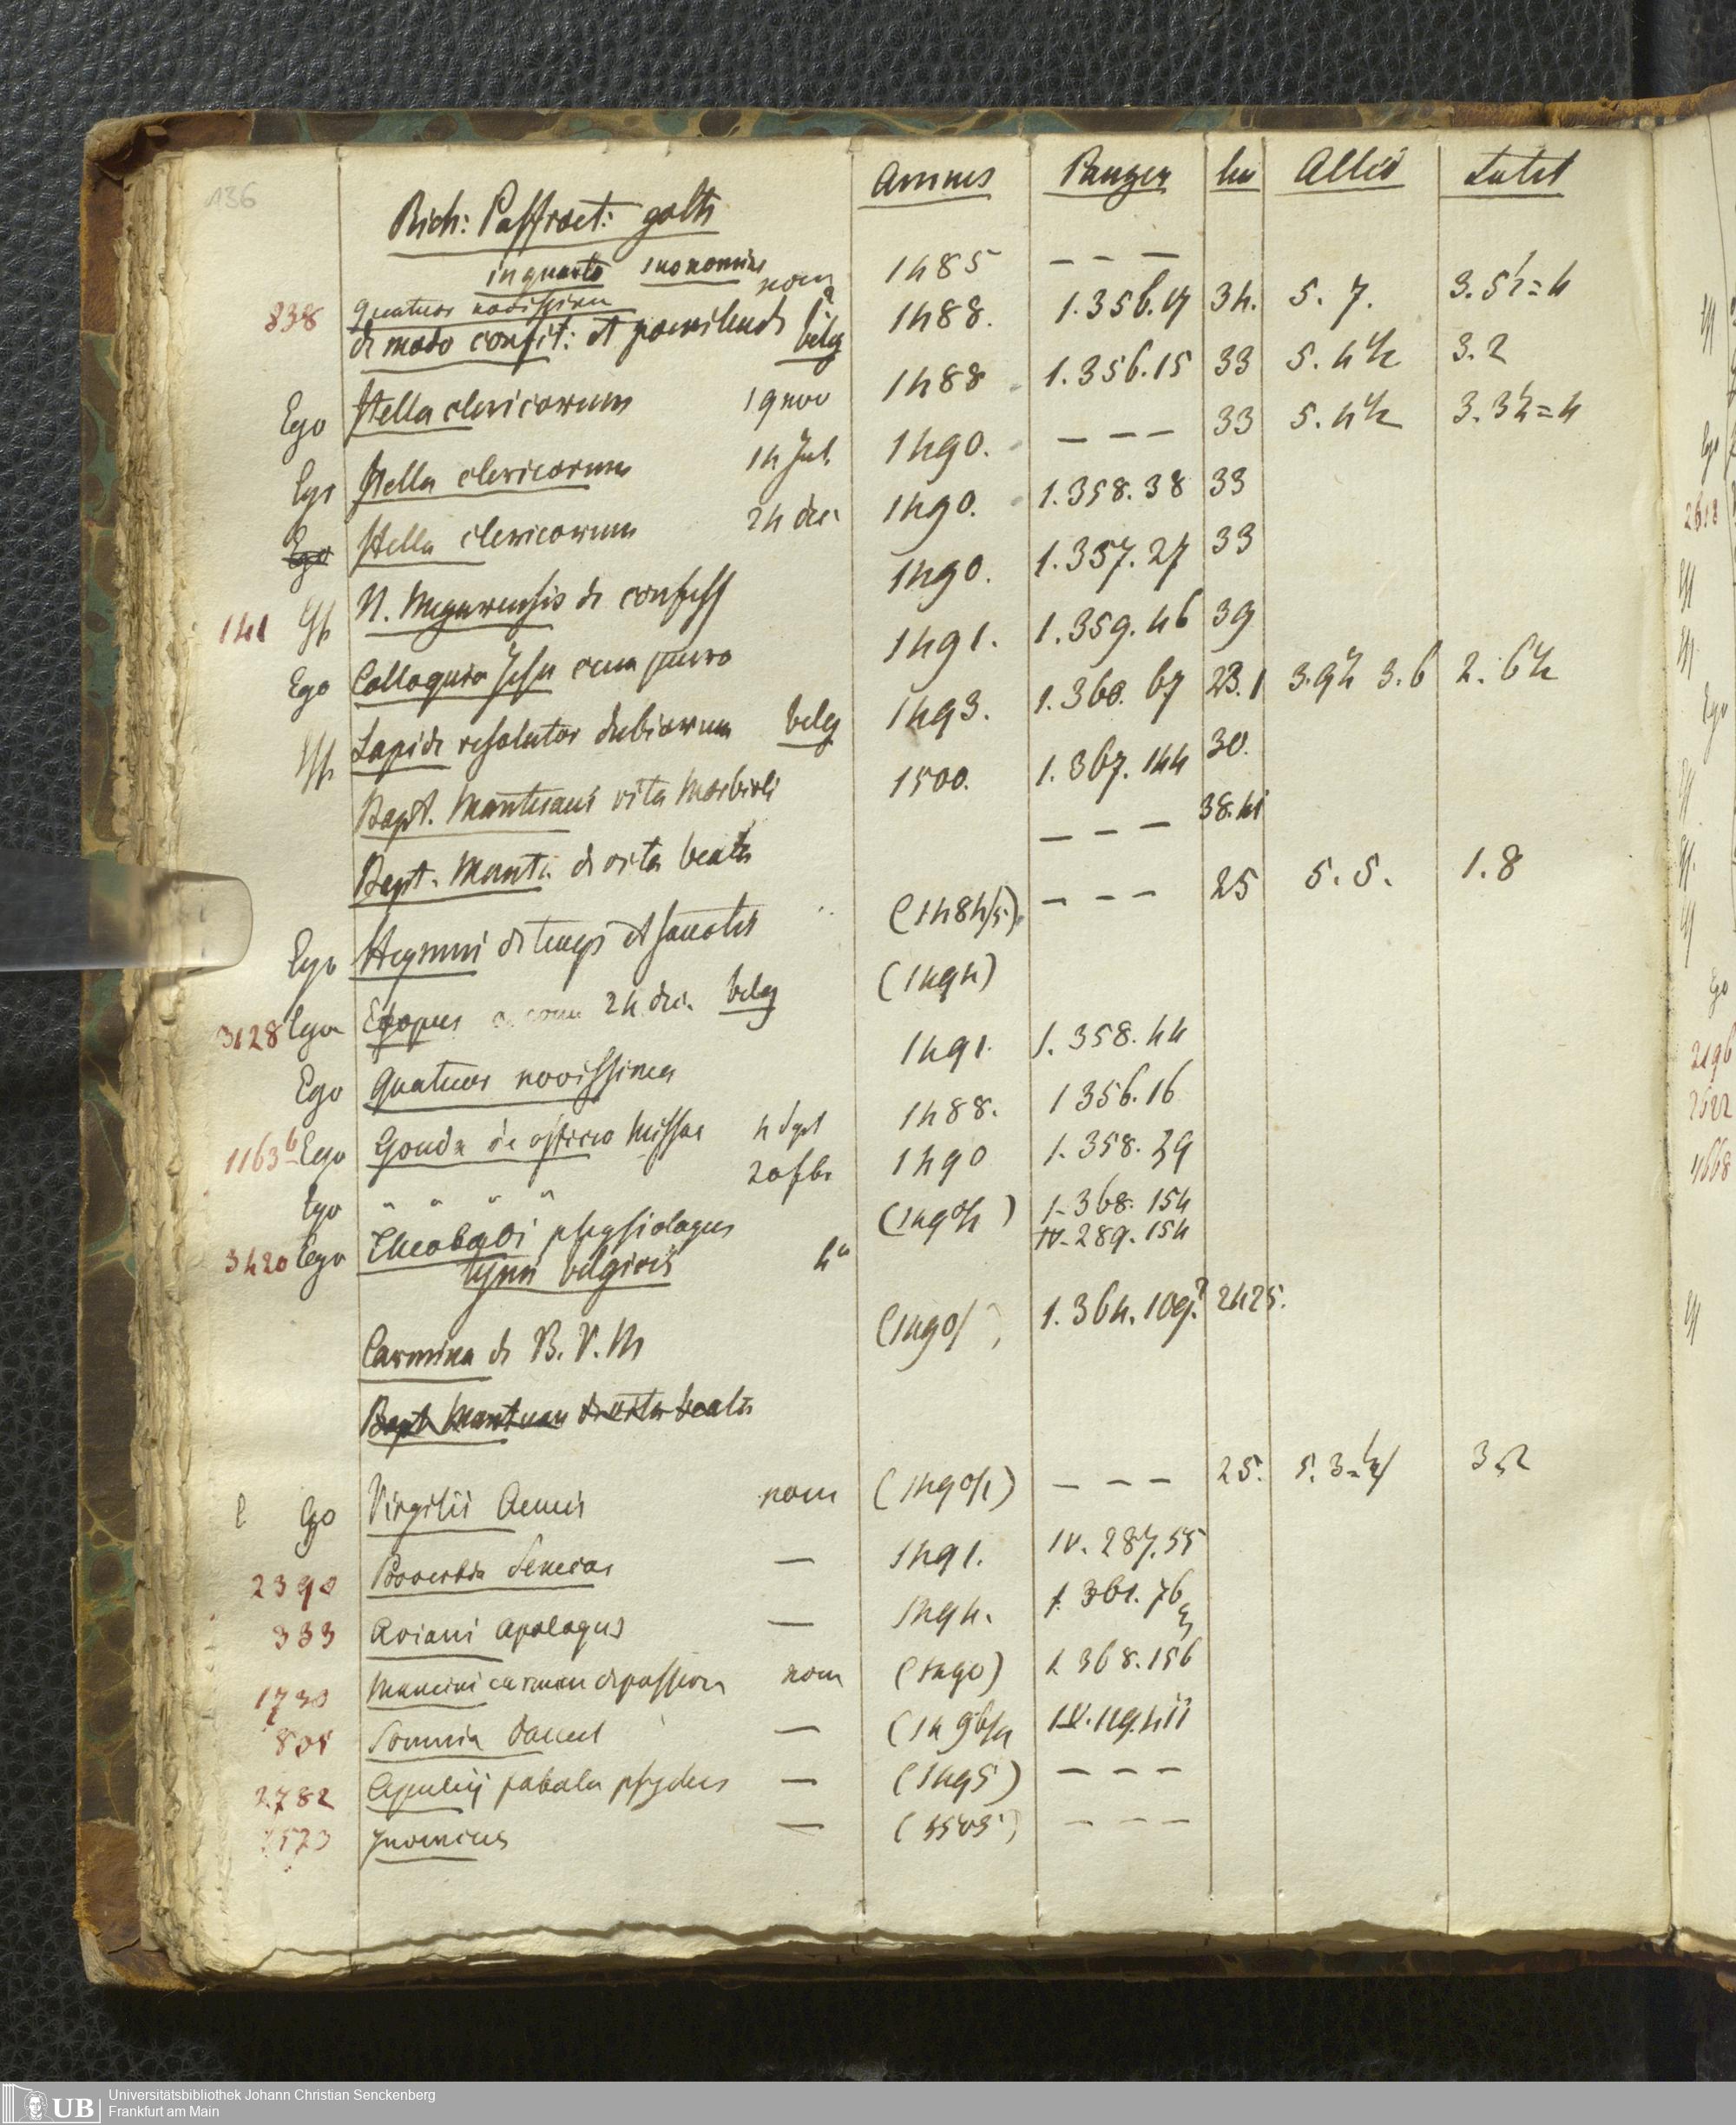 136
Rich: Paffroet: goth Annus Panzer lin Altid Latit
in quarto sine nomine
Quatuor novissima nom 1485 - - -
838 de modo confit: et poenitendi belg 1488. 1.356.17 34. 5. 7. 3.5½=4
Ego Stella clericorum 19 nov 1488 1.356.15 33 5. 4½ 3.2
Ego Stella clericorum 14 Jul 1490. - - - 33 5. 4½ 3.3½=4
Ego Stella clericorum 24 dec 1490. 1.358.38 33
141 N. Megarensis de confess 1490. 1.357.27 33
Ego Colloquia Jesu cum puero 1491. 1.359.46 39
Lapide resolutor dubiorum belg 1493. 1.360.67 23.1 3.9½ 3.6 2.6½
Bapt. Mantuani vita 1500. 1.367.144 30.
Bapt. Mant. de vita beata - - - 38.41
Ego Hymni de temp et sanctis (1484/5) - - - 25 5.5. 1.8
3128 Ego Esopus 24 dec. belg (1494)
Ego Quatuor novissima 1491. 1.358.44
1163b Ego Gouda de officio missae 4 sept 1488. 1 356.16
Ego " " " " 20 fbr 1490 1.358.39
3420 Ego Theobaldi physiologus (1490/2) 1.368.154
typis belgicis 4o IV.289.154
Carmina de B.V.M (1490/ ) 1.364.109? 24 25.
Bapt Mantuan de vita beata
Ego Virgilii Aeneis nom (1490/1) - - - 25. 5.3=½ 3.2
2390 Proverbia Senecae — 1491. IV.287.55
333 Aviani Apologus — 1494. 1.361.76
1730 Mancini carmen de passione nom (1490) 1 368.156
801 Somnia Daniel — (1496/ IV.
2782 Apuleij fabula psyches — (1495) - - -
— (1503) - - -
Universitätsbibliothek Johann Christian Senckenberg
Frankfurt am Main
UB